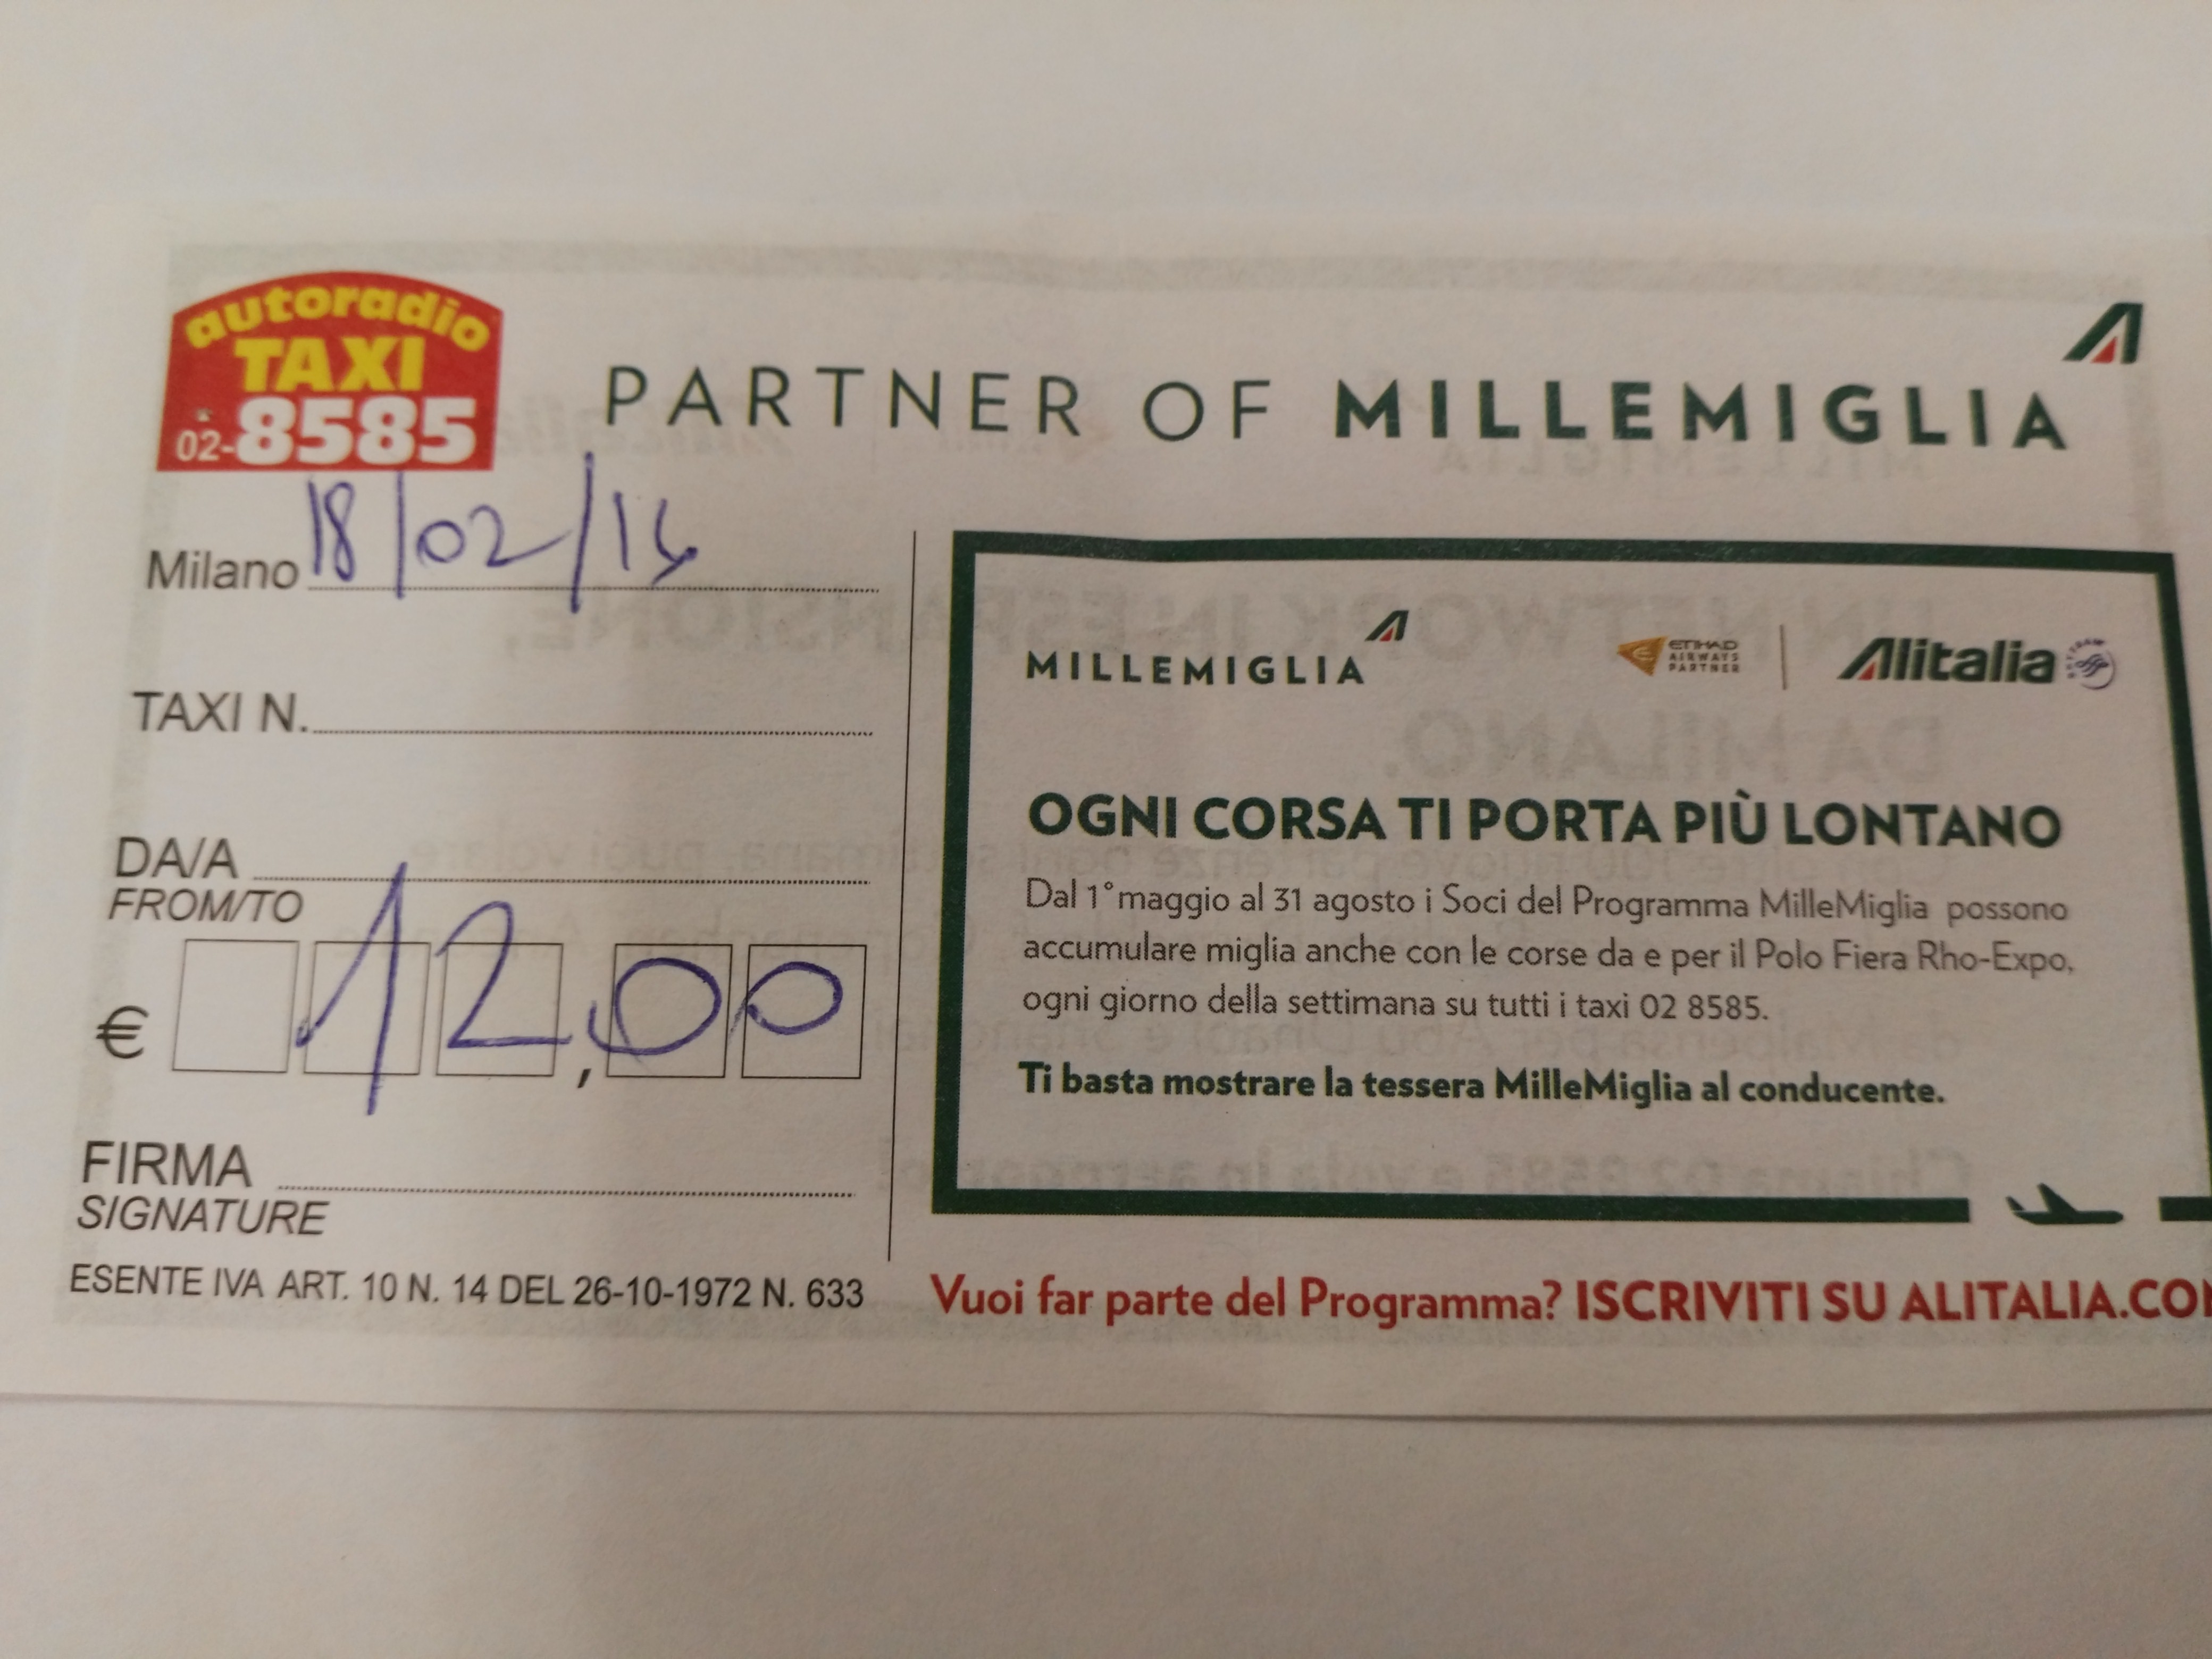 autoradio
TAXI
02-8585
PARTNER OF MILLEMIGLIA
Milano 18/02/
TAXI N.
DA/A
FROM/TO
€ 12,00
FIRMA
SIGNATURE
ESENTE IVA ART. 10 N. 14 DEL 26-10-1972 N. 633
MILLEMIGLIA
ETIHAD
AIRWAYS
PARTNER
Alitalia
OGNI CORSA TI PORTA PIÙ LONTANO
Dal 1° maggio al 31 agosto i Soci del Programma MilleMiglia possono
accumulare miglia anche con le corse da e per il Polo Fiera Rho-Expo,
ogni giorno della settimana su tutti i taxi 02 8585.
Ti basta mostrare la tessera MilleMiglia al conducente.
Vuoi far parte del Programma? ISCRIVITI SU ALITALIA.CO